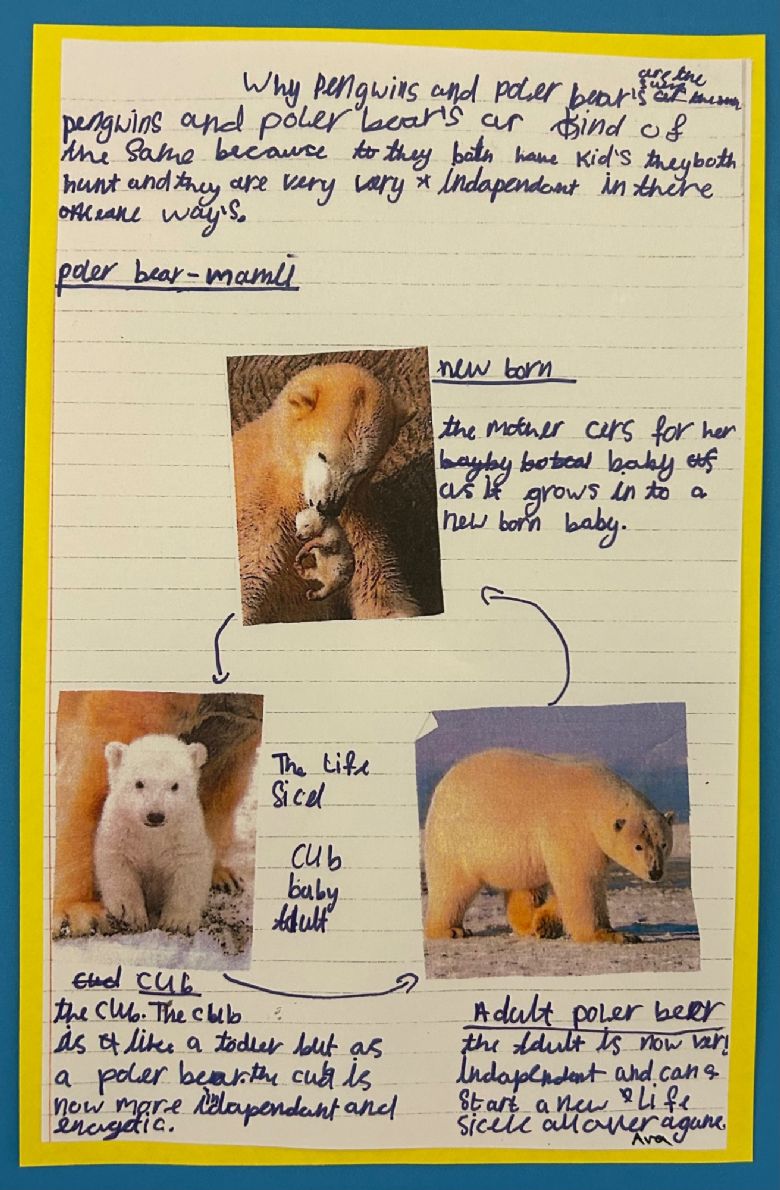 Why Pengwins and poler bear's are the
pengwins and poler bear's ar kind of
the same because to they both have kid's they both
hunt and they are very very indapendant in there
way's.
poler bear - mamli
new born
the mother cers for her
bayby baby
as it grows in to a
new born baby.
The Life
Sicel
CUb
baby
Adult
CUb
the CUb. The cbub
is like a todler but as
a poler bear. the cub is
now more indapendant and
enagetic.
Adult poler beer
the Adult is now very
indapendant and can
Start a new life
sicele all over agane.
Ava